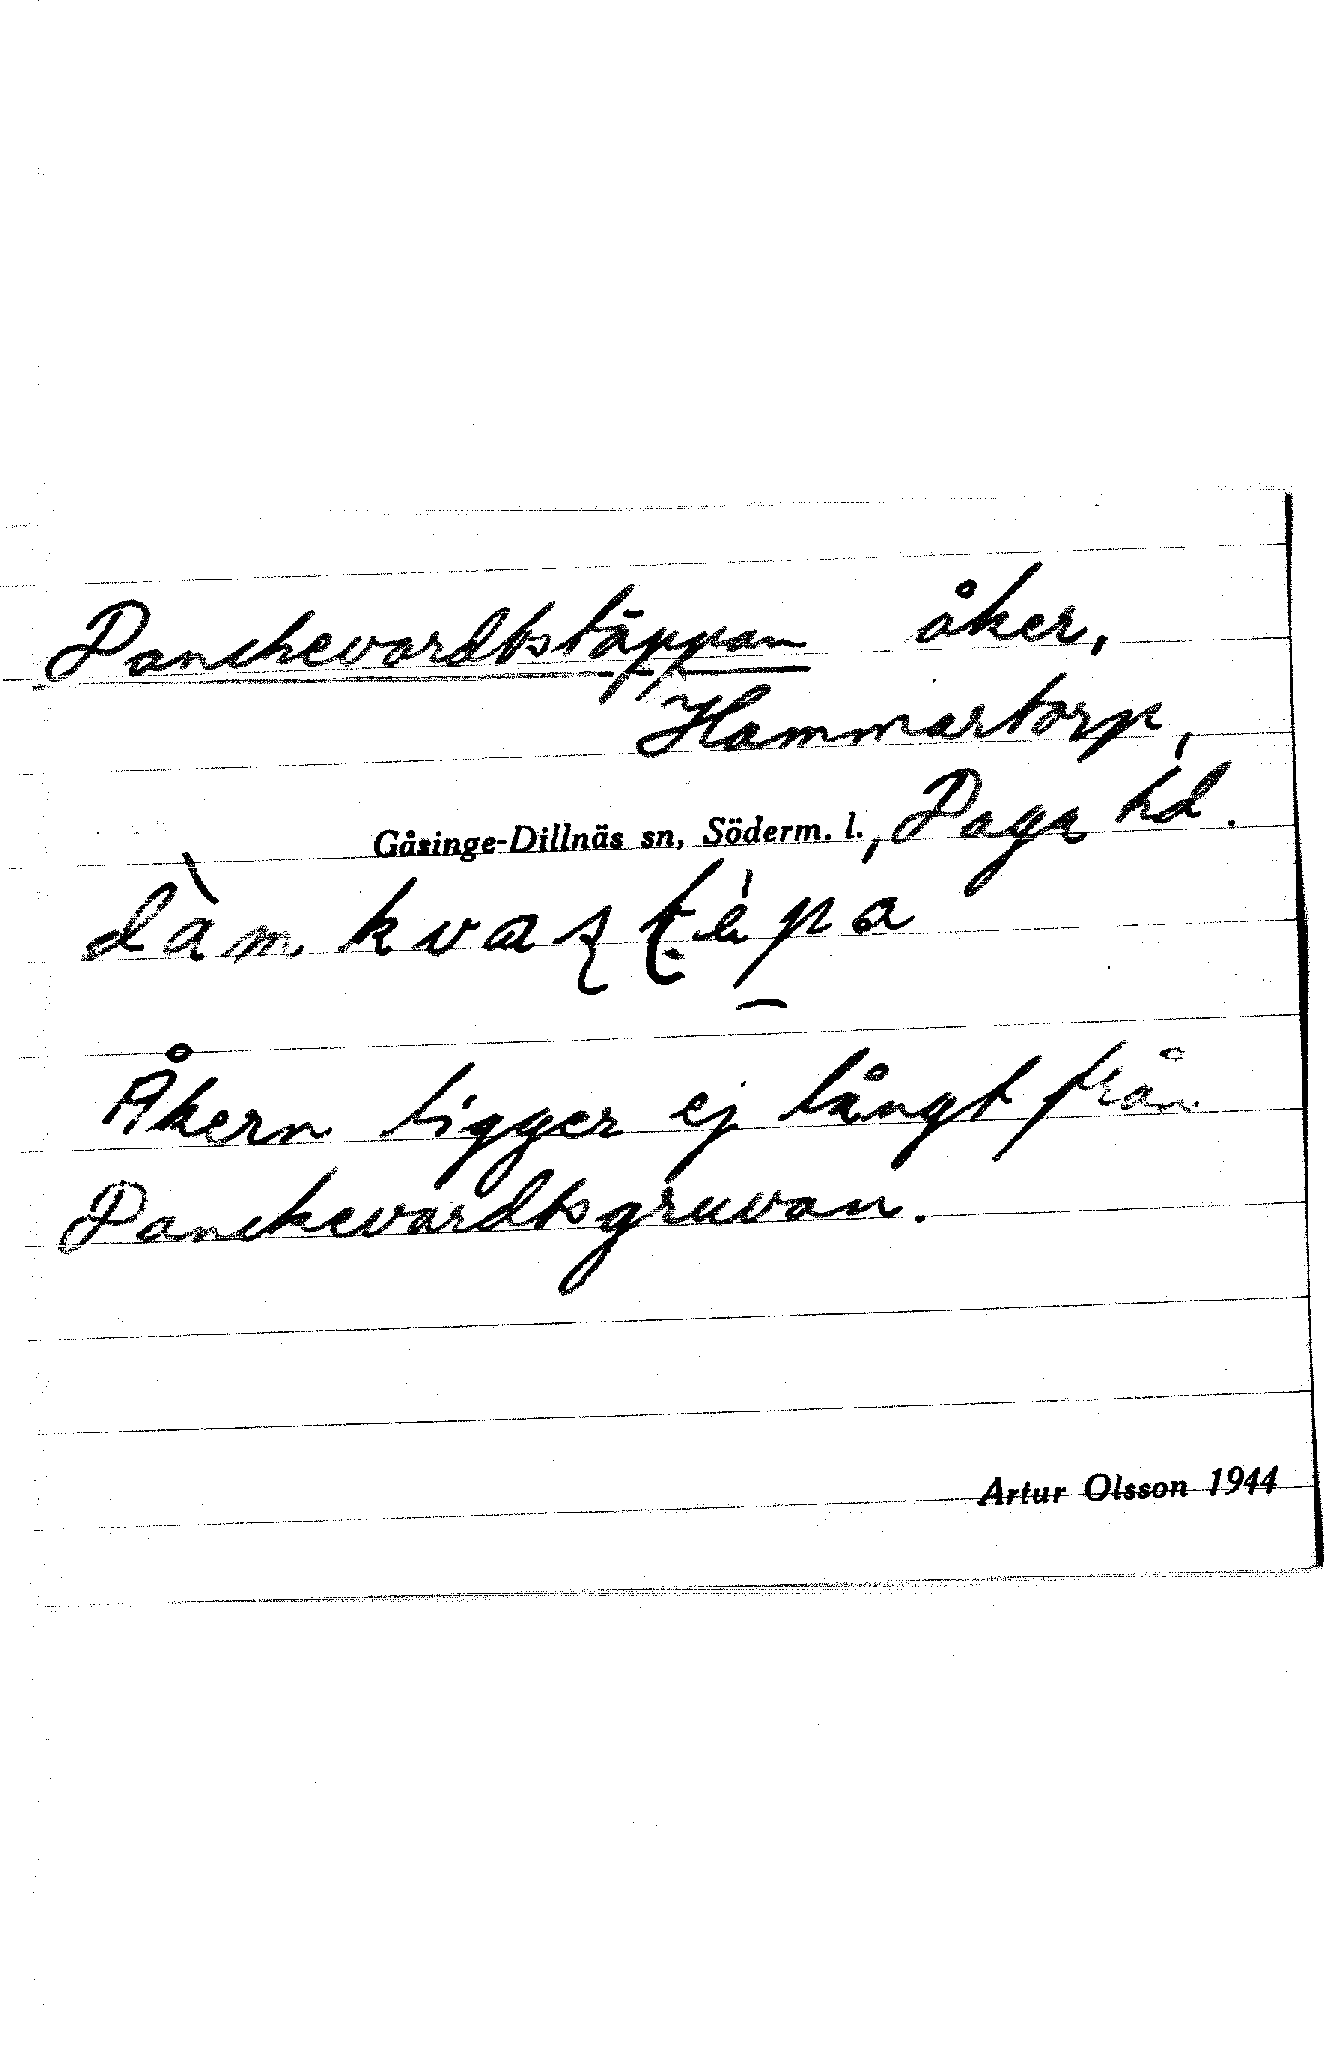 Danckwardtstäppan åker,
Hammartorp,
Gåsinge-Dillnäs sn, Söderm. l., Daga hd.
Åkern ligger ej långt från
Danckwardtsgruvan.
Artur Olsson 1944